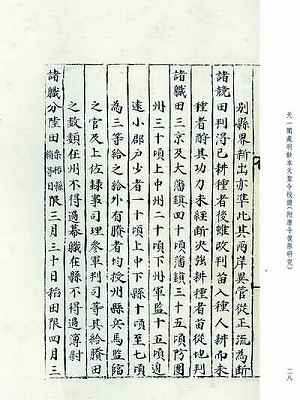 天一閣藏明鈔本天聖令校證(附唐令復原研究)
二八
別縣界新出亦準此其兩岸異管從正流為斷
諸競田判得已耕種者後雖改判苗入種人耕而未
種者酬其功力未經斷決強耕種者苗從地判
諸職田三京及大藩鎮四十頃藩鎮三十五頃防團
州三十頃上中州二十頃下州軍監十五頃邊
遠小郡戶少者一十頃上中下縣十頃至七頃
為三等給之給外有賸者均授州縣兵馬監臨
之官及上佐錄事司理參軍判司等其給賸田
之數類在州不得過幕職在縣不得過薄尉
諸職分陸田限三月三十日稻田限四月三